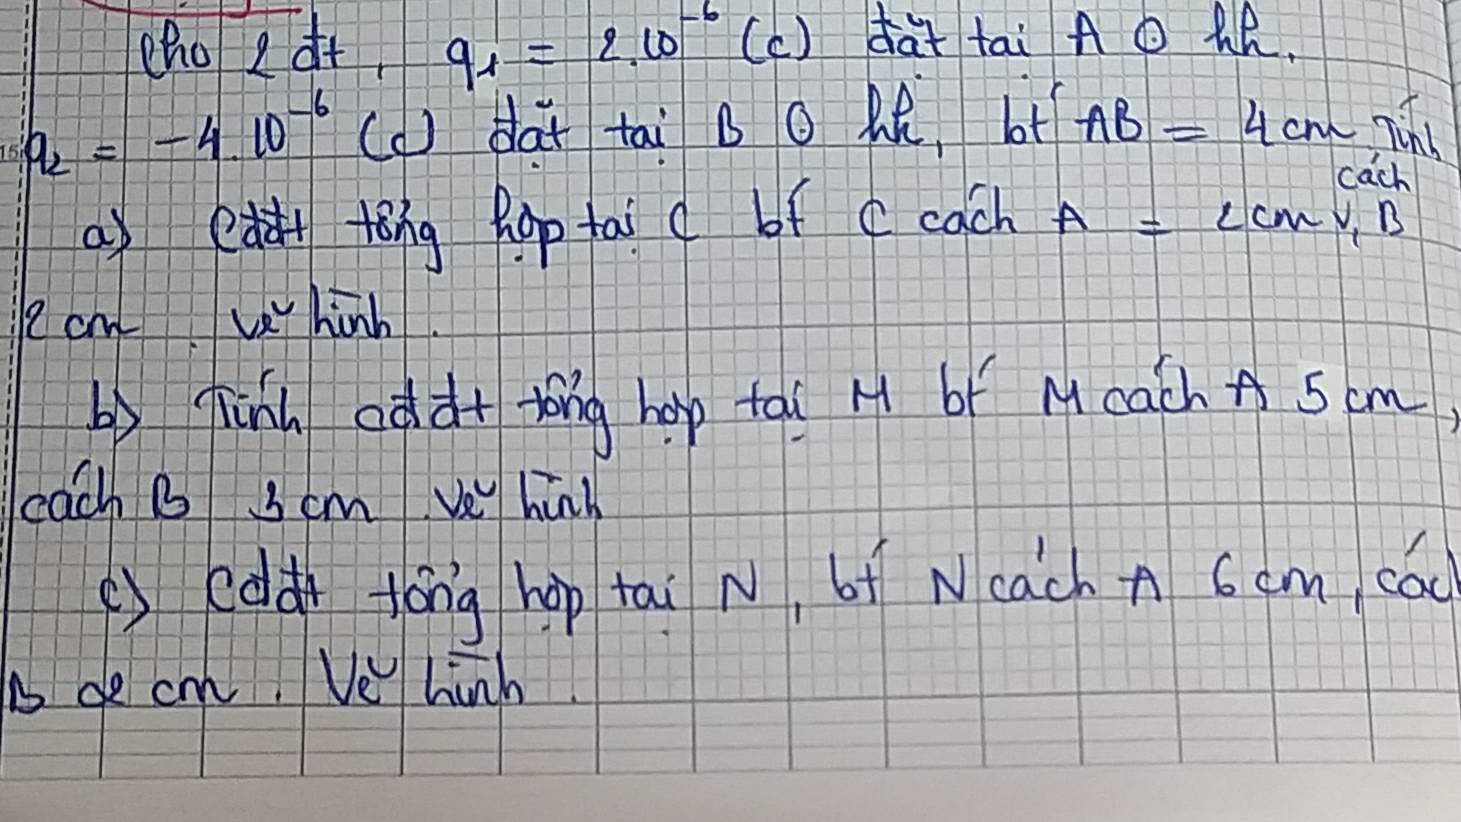 Cho 2 đt, q₁ = 2.10⁻⁶ (C) đặt tại A ⊙ kk.
q₂ = -4.10⁻⁶ (C) đặt tại B ⊙ kk, bt AB = 4 cm. Tính
a) Cđđt tổng hợp tại C bt C cách A = 2 cm v, cách B
2 cm. vẽ hình.
b) Tính cđđt tổng hợp tại M bt M cách A 5 cm,
cách B 3 cm. Vẽ hình
c) Cđđt tổng hợp tại N, bt N cách A 6 cm, các
B cm. Vẽ hình.